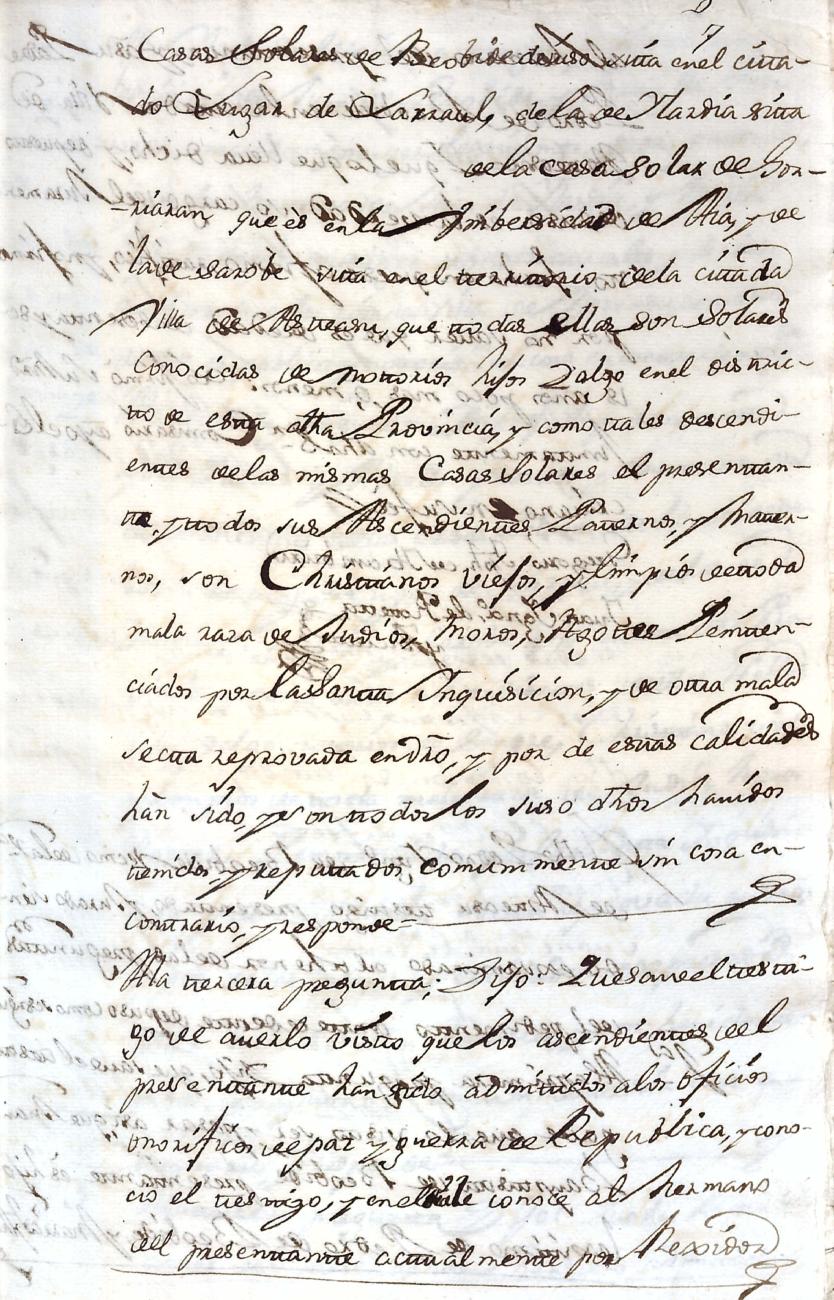 Casas Solares de Beobide de suso sita en el cita-
do Lugar de Larraul, de la de Mardia sita
de la casa solar de Gor-
riaran que es en la Vnibersidad de Aia, y de
la de sarobe sita en el territorio de la citada
Villa de Asteasu, que ttodas ellas son Solares
Conocidas de nottorios hijos Dalgo en el distric-
tto de esta dha Provincia, y como ttales descendi-
entes de las mismas Casas Solares el presenttan-
te, y ttodos sus Ascendientes Paternos, y Mater-
nos, son Christtianos viejos, y limpios de ttoda
mala raza de Judios, Moros, Agotes Penitten-
ciados por la Santta Inquisicion, y de otra mala
secta reprovada en dro, y por de estas calidades
han sido, y son ttodos los suso dhos havidos
ttenidos y reputtados, comunmentte sin cosa en
contrario, y responde=
A la tercera pregunta; Dijo: Que save el testi-
go de averlo visto que los ascendientes del
presenttante han sido admittidos a los oficios
onorificos de paz y guerra de Republica, y cono-
cio el testigo, y en el conoce al hermano
del presenttante acttualmente por Rexidor